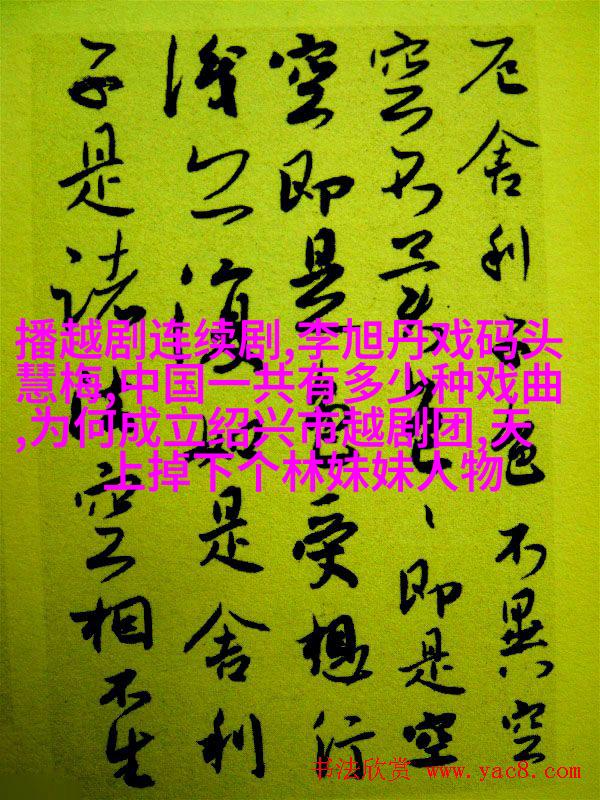 厄舍利子色不異空
空不異色、即是空
空即是色受想行
識亦復如是舍利
子是諸法空相不生
播越剧连续剧,李旭丹戏码头
慧梅,中国一共有多少种戏曲
,为何成立绍兴市越剧团,天
上掉下个林妹妹人物
书法欣赏 www.yac8.com